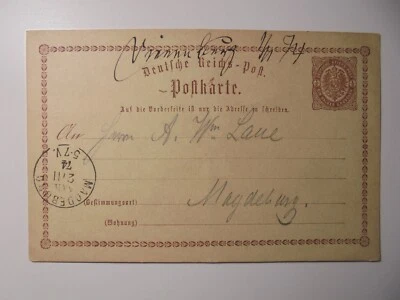 1/1 74
Deutsche Reichs-Post.
Postkarte.
Auf die Vorderseite ist nur die Adresse zu schreiben.
An Herrn A. Wm Laue
Magdeburg.
(Bestimmungsort)
(Wohnung)
MAGDEBURG
2/1
74
5-7 V.